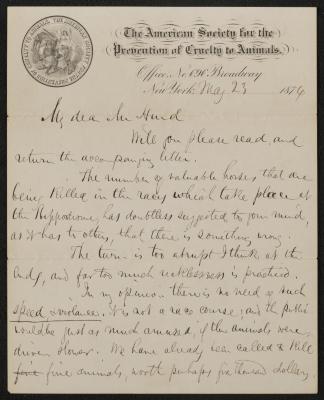 The American Society for the
Prevention of Cruelty to Animals,
Office, No. 696 Broadway
New York, May 23 1874
My dear Mr Hurd
Will you please read, and
return the accompanying letter.
The number of valuable horses that are
being killed in the races which take place at
the Hippodrome, has doubtless suggested to your mind,
as it has to others, that there is something wrong.
The turn is too abrupt I think at the
ends, and far too much recklessness is practiced.
In my opinion there is no need of such
speed & violence. It is not a race course, and the public
would be just as much amused, if the animals were
driven slower. We have already been called to kill
five five animals, worth perhaps five thousand dollars